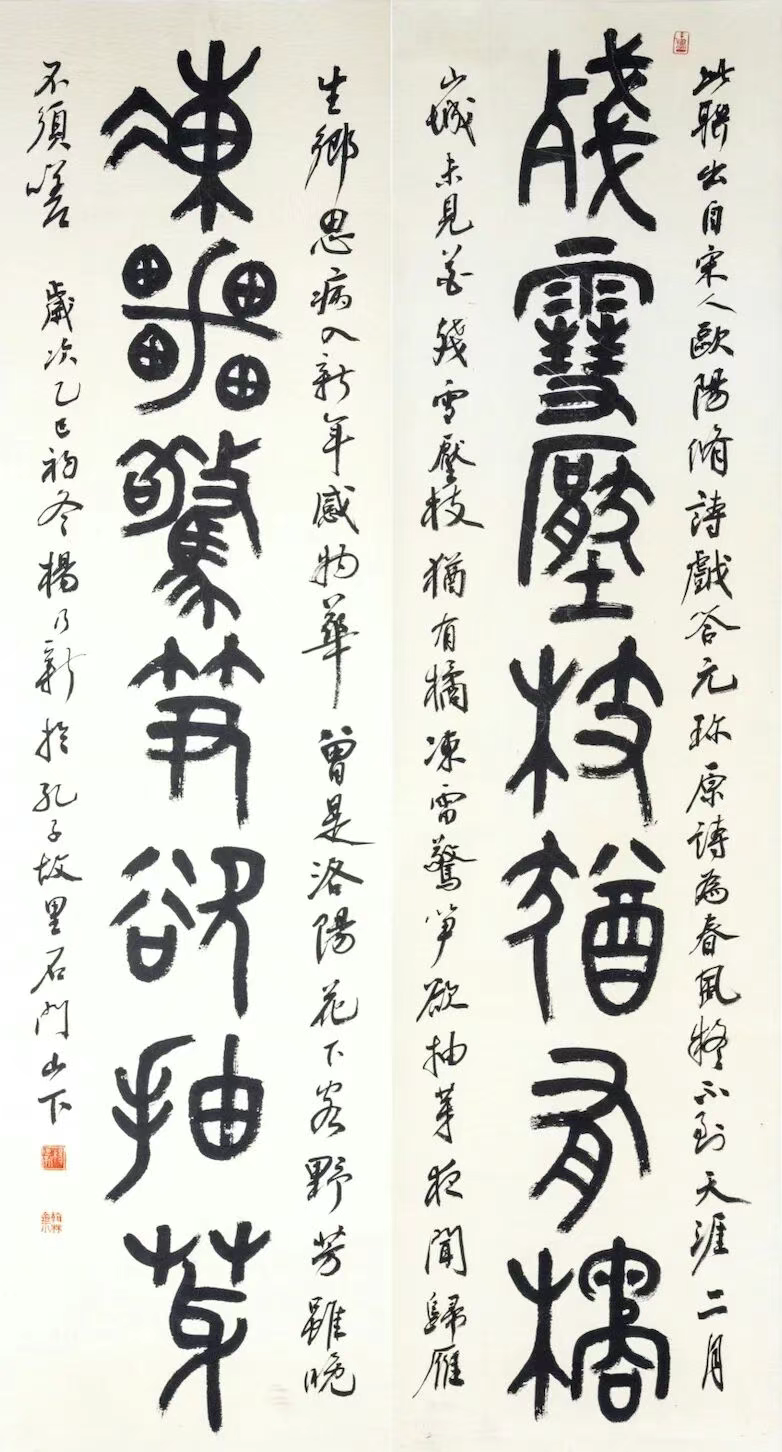 此聯出自宋人歐陽脩詩戲答元珍原詩為春風疑不到天涯二月
殘雪壓枝猶有橘
山城未見花殘雪壓枝猶有橘凍雷驚笋欲抽芽夜聞歸雁
生鄉思病入新年感物華曾是洛陽花下客野芳雖晚
凍雷驚笋欲抽芽
不須嗟 歲次乙巳初冬楊乃新於孔子故里石門山下